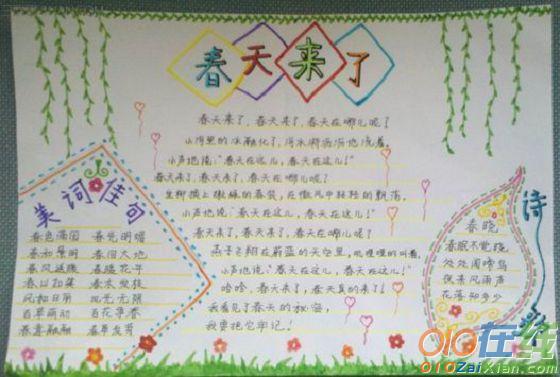 春天来了
春天来了，春天来了，春天在哪儿呢？
小河里的冰融化了，河水哗哗哗地流着，
小声地说：“春天在这儿，春天在这儿！”
春天来了，春天来了，春天在哪儿呢？
垂柳换上嫩绿的春装，在微风中轻轻的飘荡，
小声地说：“春天在这儿，春天在这儿！”
春天来了，春天来了，春天在哪儿呢？
燕子飞翔在蔚蓝的天空里，叽哩哩的叫着，
小声地说：“春天在这儿，春天在这儿！”
哈哈，春天来了，春天真的来了！
我看见了春天的秘密，
我要把它牢记！
美词佳句
春色满园 春光明媚
春和景明 春回大地
春风送暖 春暖花开
春山如笑 春木
风和日丽 无限
百草萌动 百花争春
春意融融 春草发芽
诗
春晓
春眠不觉晓
处处闻啼鸟
夜来风雨声
花落知多少
010在线
010ZaiXian.com